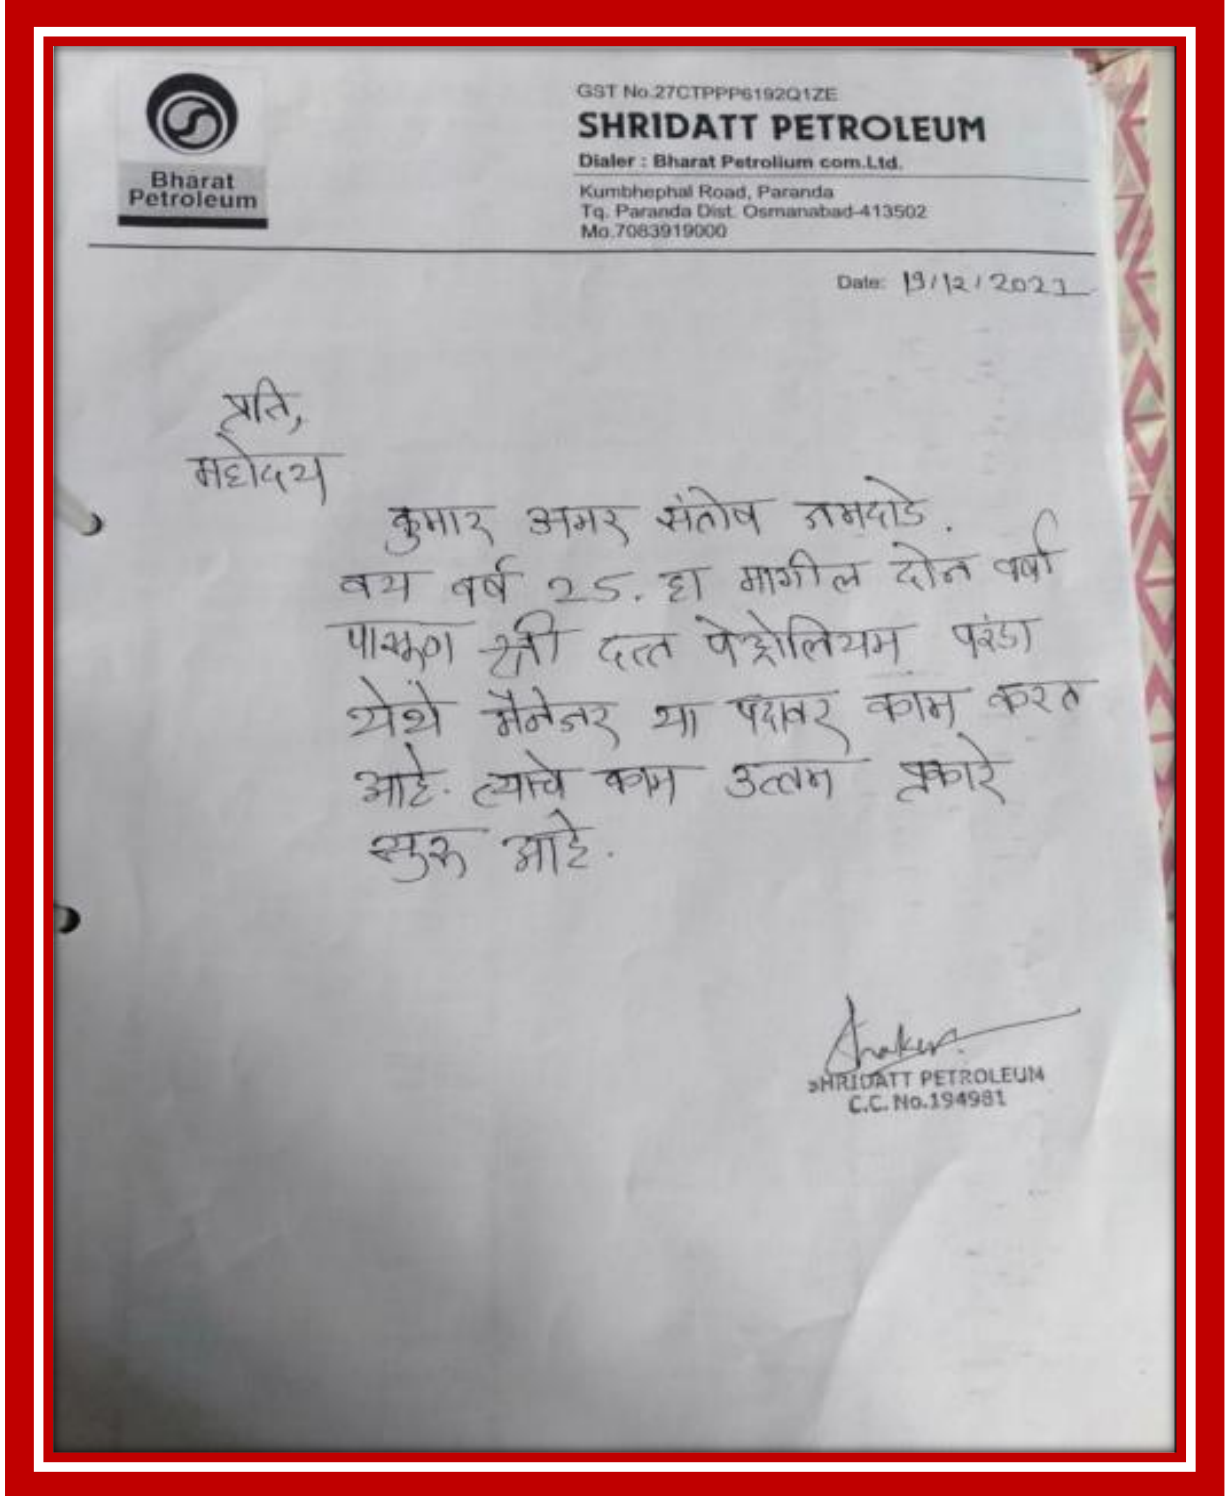 Bharat
Petroleum
GST No.27CTPPP6192Q1ZE
SHRIDATT PETROLEUM
Dialer : Bharat Petrolium com.Ltd.
Kumbhephal Road, Paranda
Tq. Paranda Dist. Osmanabad-413502
Mo.7083919000
Date: 19/12/2021
प्रति,
महोदय
कुमार अमर संतोष नमदाडे.
वय वर्ष 25. हा मागील दोन वर्षा
पासुण श्री दत्त पेट्रोलियम परंडा
येथे मॅनेजर या पदावर काम करत
आहे. त्याचे काम उत्तम प्रकारे
सुरू आहे.
SHRIDATT PETROLEUM
C.C. No.194981